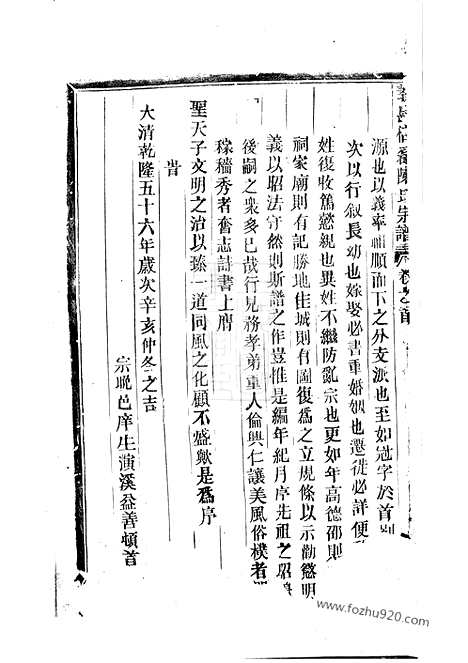 陳氏宗譜 卷之首
源也以義率而順而下之外支派也至如冠字於首別
次以行叙長幼也嫁娶必書重婚姻也遷徙必詳便
姓復收篤懿親也異姓不繼防亂宗也更如年高德邵則
祠家廟則有記勝地佳城則有圖復爲之立規條以示勸懲明
義以昭法守然則斯譜之作豈惟是編年紀月序先祖之昭
後嗣之衆多已哉行見務孝弟重人倫興仁讓美風俗樸者
稼穡秀者奮志詩書上膺
聖天子文明之治以臻一道同風之化顧不盛歟是爲序
旹
大清乾隆五十六年歲次辛亥仲冬之吉
宗晚邑庠生演溪益善頓首
www.fozhu920.com